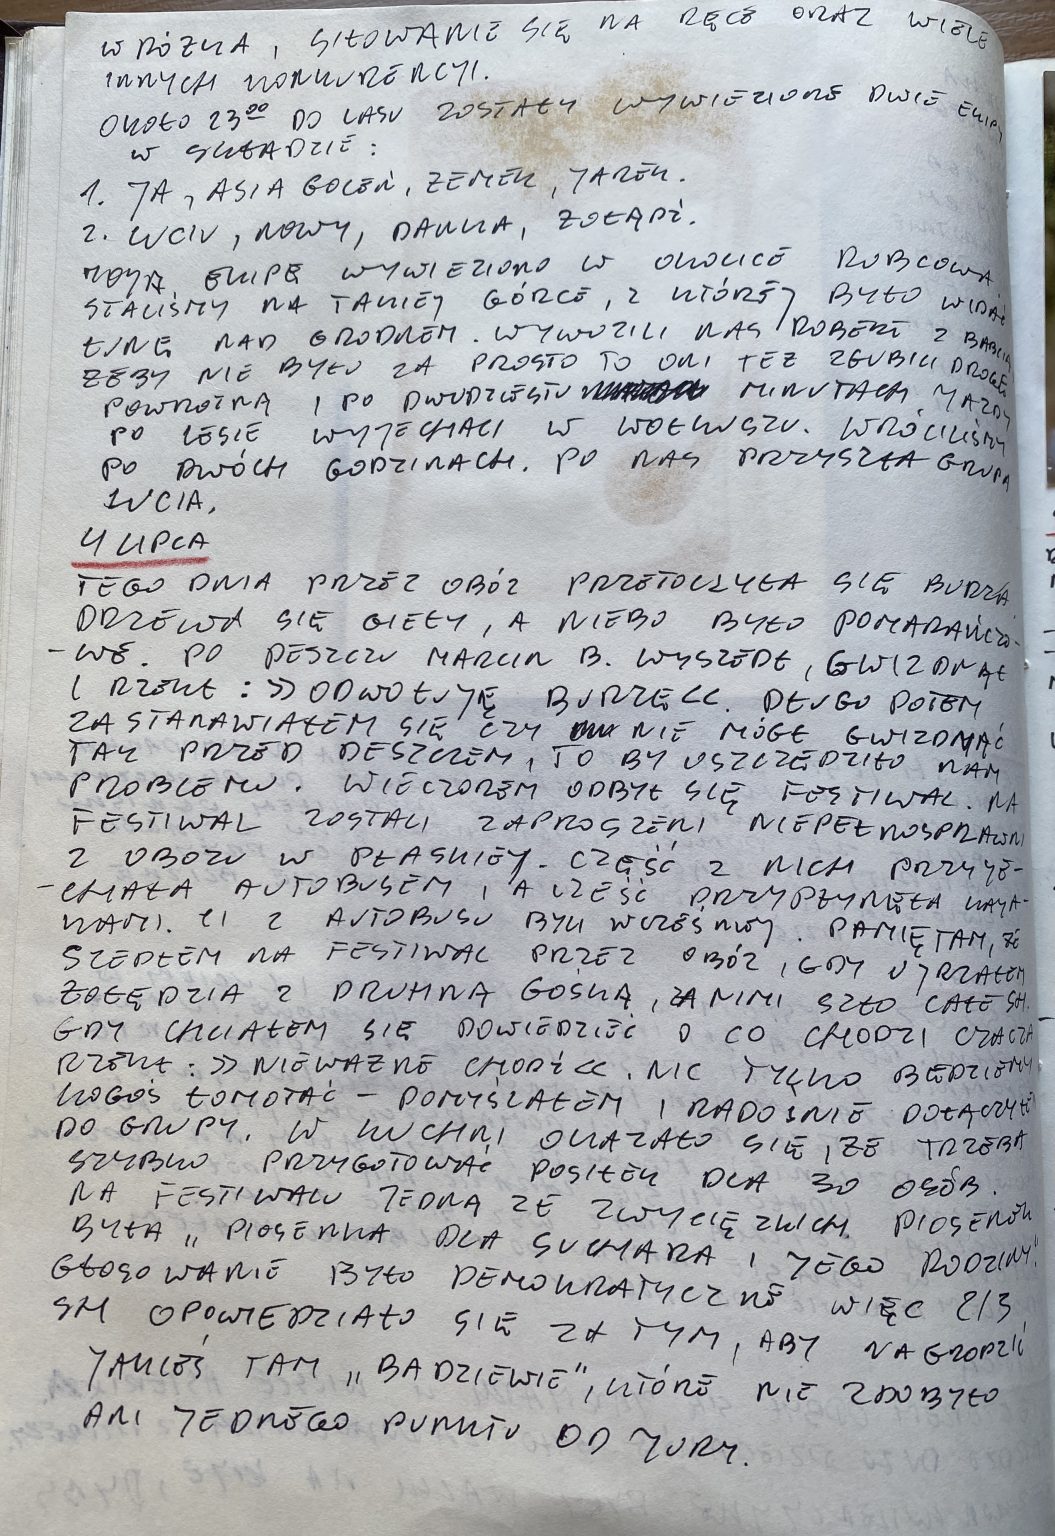 WRÓŻKA, SIŁOWANIE SIĘ NA RĘCE ORAZ WIELE
INNYCH KONKURENCYI.
OKOŁO 23⁰⁰ DO LASU ZOSTAŁY WYWIEZIONE DWIE EKIPY
W SKŁADZIE:
1. JA, ASIA GOLEŃ, ZEMEK, JAREK.
2. LUCIU, NOWY, DANKA, ŻOŁĄDŹ.
MOJĄ EKIPĘ WYWIEZIONO W OKOLICE RUBCOWA
STALIŚMY NA TAKIEJ GÓRCE, Z KTÓREJ BYŁO WIDAĆ
ŁUNĘ NAD GRODNEM. WYWOZILI NAS ROBERT Z BABCIĄ
ŻEBY NIE BYŁO ZA PROSTO TO ONI TEŻ ZGUBILI DROGĘ
POWROTNĄ I PO DWUDZIESTU MINUTACH JAZDY
PO LESIE WYJECHALI W WOŁKUSZU. WRÓCILIŚMY
PO DWÓCH GODZINACH. PO NAS PRZYSZŁA GRUPA
LUCIA.
4 LIPCA
TEGO DNIA PRZEZ OBÓZ PRZETOCZYŁA SIĘ BURZA
DRZEWA SIĘ GIEŁY, A NIEBO BYŁO POMARAŃCZO-
-WE. PO DESZCZU MARCIN B. WYSZEDŁ, GWIZDNĄŁ
I RZEKŁ: >> ODWOŁUJĘ BURZĘ <<. DŁUGO POTEM
ZASTANAWIAŁEM SIĘ CZY NIE MÓGŁ GWIZDNĄĆ
TAK PRZED DESZCZEM, TO BY USZCZĘDZIŁO NAM
PROBLEMU. WIECZOREM ODBYŁ SIĘ FESTIWAL. NA
FESTIWAL ZOSTALI ZAPROSZENI NIEPEŁNOSPRAWNI
Z OBOZU W PŁASKIEJ. CZĘŚĆ Z NICH PRZYJE-
-CHAŁA AUTOBUSEM, A CZEŚĆ PRZYPŁYNĘŁA KAJA-
KAMI. CI Z AUTOBUSU BYLI WCZEŚNIEJ. PAMIĘTAM, ŻE
SZEDŁEM NA FESTIWAL PRZEZ OBÓZ, GDY UJRZAŁEM
ŻOŁĘDZIA Z DRUHNĄ GOŚKĄ, ZA NIMI SZŁO CAŁE SM.
GDY CHCIAŁEM SIĘ DOWIEDZIEĆ O CO CHODZI CZACZA
RZEKŁ: >> NIEWAŻNE CHODŹ <<. NIC TYLKO BĘDZIEMY
KOGOŚ ŁOMOTAĆ - DOMYŚLAŁEM I RADOŚNIE DOŁĄCZYŁEM
DO GRUPY. W KUCHNI OKAZAŁO SIĘ, ŻE TRZEBA
SZYBKO PRZYGOTOWAĆ POSIŁEK DLA 30 OSÓB.
NA FESTIWALU JEDNĄ ZE ZWYCIĘZKICH PIOSENEK
BYŁA „PIOSENKA DLA SUCHARA I JEGO RODZINY".
GŁOSOWANIE BYŁO DEMOKRATYCZNE WIĘC 2/3
SM OPOWIEDZIAŁO SIĘ ZA TYM, ABY NAGRODZIĆ
JAKIEŚ TAM „BADZIEWIE", KTÓRE NIE ZDOBYŁO
ANI JEDNEGO PUNKTU OD JURY.